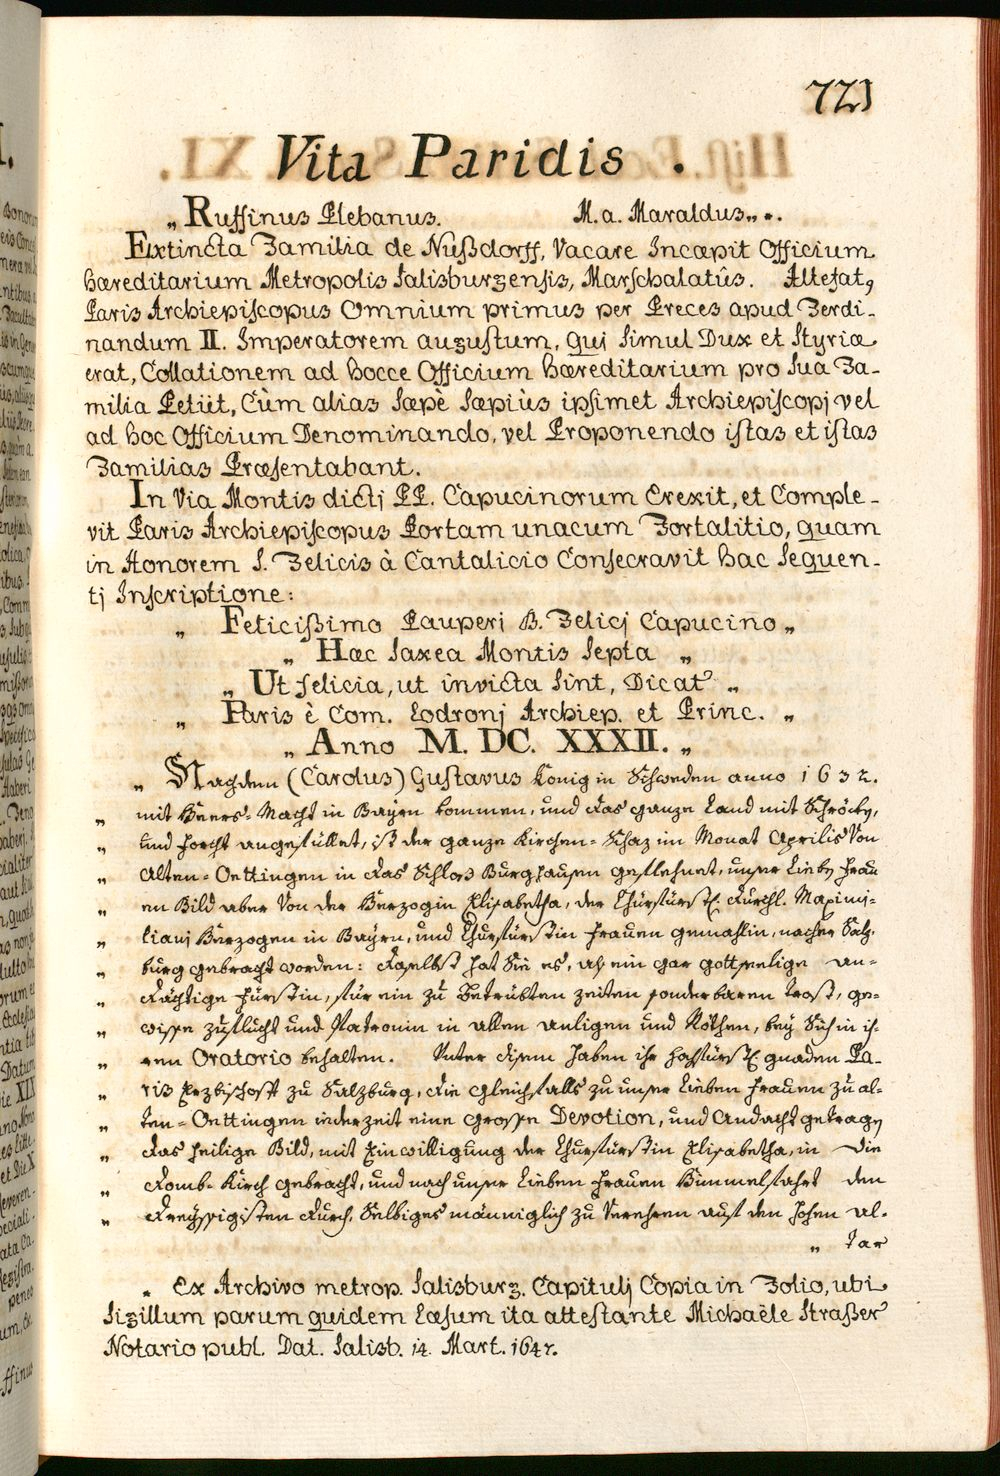 721
Vita Paridis .
„ Ruffinus Plebanus. M. a. Maraldus„ *.
Extincta Familia de Nußdorff, Vacare Incæpit Officium
hæreditarium Metropolis Salisburgensis, Marschalatûs. Attefat,
Paris Archiepiscopus Omnium primus per Preces apud Ferdi-
nandum II. Imperatorem augustum, quj simul Dux et Styriæ
erat, Collationem ad hocce Officium hæreditarium pro sua Fa-
milia Petiit, Cùm alias sæpè sæpiùs ipsimet Archiepiscopj vel
ad hoc Officium Denominando, vel Proponendo istas et istas
Familias Præsentabant.
In Via Montis dictj PP. Capucinorum Erexit, et Comple-
vit Paris Archiepiscopus Portam unacum Fortalitio, quam
in Honorem S. Felicis à Cantalicio Consecravit hac sequen-
tj Inscriptione:
„ Feticißimo Pauperj B. Felicj Capucino „
„ Hæc saxea Montis septa „
„ Ut felicia, ut invicta sint, Dicat „
„ Paris è Com. Lodronj Archiep. et Princ. „
„ Anno M. DC. XXXII. „
„ Nachdem (Carolus) Gustavus König in Schweden anno 1632.
„ mit Heers-Macht in Bayrn kommen, und das ganze Land mit Schröcken,
„ und forcht angefüllet, ist der ganze Kirchen-Schaz im Monat Aprilis Von
„ Alten-Oettingen in das Schloß Burghausen geflehnet, unser Lieben Frau
„ en Bild aber Von der Herzogin Elisabetha, der Churfürstl. Durchl. Maximi-
„ lianj Herzogen in Bayrn, und Churfürstin Frauen gemahlin, nacher Salz-
„ burg gebracht worden: daselbst hat Sie es, als ein gar gottseelige an-
„ dächtige Fürstin, für ein zu betrübten zeiten sonderbaren trost, ge-
„ wisse zuflucht und Patronin in allen anligen und Nöthen, bey Sich in ih-
„ ren Oratorio behalten. Unter disem haben ihr hochfürstl. gnaden Pa-
„ ris Erzbischoff zu Salzburg, die gleichfalls zu unser Lieben Frauen zu al-
„ ten-Oettingen iederzeit eine grosse Devotion, und Andacht getragen
„ das heilige Bild, mit Einwilligung der Churfürstin Elisabetha, in die
„ Domb-Kirch gebracht, und nach unser Lieben Frauen Himmelfahrt den
„ dreyssigisten durch, Selbiges männiglich zu Verehren auf den hohen al-
„ tar
* Ex Archivo metrop. Salisburg. Capitulj Copia in Folio, ubi
Sigillum parum quidem læsum ita attestante Michaële Straßer
Notario publ. Dat. Salisb. 14. Mart. 1647.